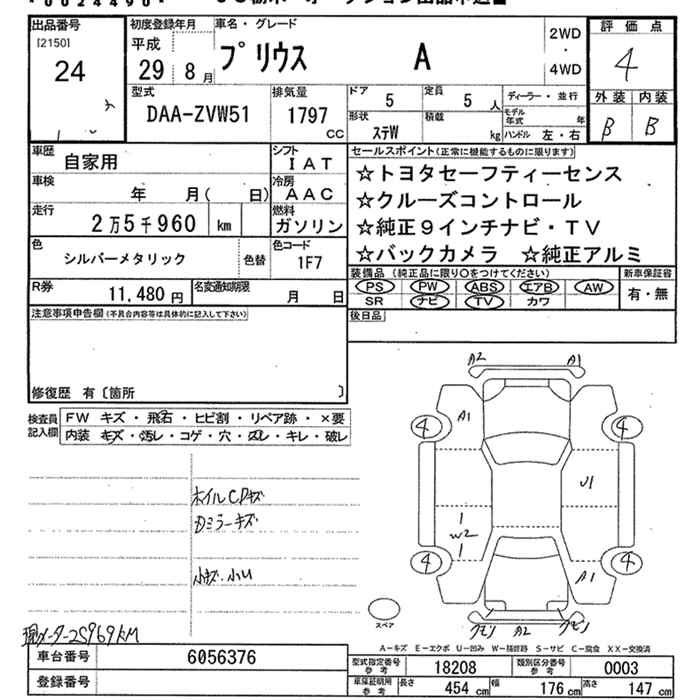 0024490
出品番号 初度登録年月 車名・グレード 評価点
[2150] 平成 プリウス A 2WD・4WD 4
24 29 8月
外装 内装
B B
型式 排気量 ドア 定員 ディーラー・並行
DAA-ZVW51 1797 CC 5 5人
形状 積載 モデル年式 年
ステW kg ハンドル 左・右
車歴 シフト セールスポイント(正常に機能するものに限ります)
自家用 IAT ☆トヨタセーフティーセンス
車検 冷房 ☆クルーズコントロール
年 月( 日) AAC ☆純正9インチナビ・TV
走行 燃料 ☆バックカメラ ☆純正アルミ
2万5千960 km ガソリン
色 色替 色コード 装備品(純正品に限り○をつけてください) 新車保証書
シルバーメタリック 1F7 PS PW ABS エアB AW 有・無
SR ナビ TV カワ
R券 名変通知期限 後日品
11,480円 月 日
注意事項申告欄(不具合内容等は具体的に記入して下さい)
修復歴 有〔箇所 〕
検査員記入欄
FW キズ・飛石・ヒビ割・リペア跡・×要
内装 キズ・汚レ・コゲ・穴・スレ・キレ・破レ
A2 A1
4 A1 4
U1
W2
4 A1 4
A2
ホイルCPキズ
Dミラーキズ
小キズ・小U
スペア
現メーター25969KM
A-キズ E-エクボ U-凹み W-補修跡 S-サビ C-腐食 XX-交換済
車台番号 6056376 型式指定番号 参考 18208 類別区分番号 参考 0003
登録番号 車庫証明用 参考 長さ 454 cm 幅 176 cm 高さ 147 cm